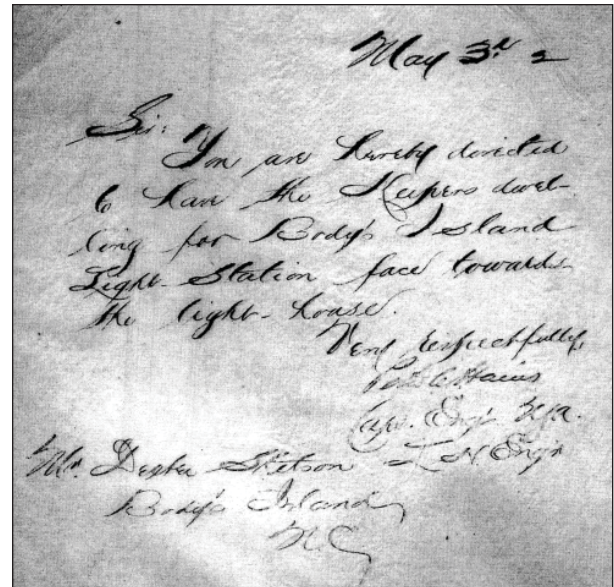 May 3d 2
Sir:
You are hereby directed
to have the Keepers dwel-
ling for Body's Island
Light-Station face towards
the light-house.
Very respectfully,
Peter C. Hains
Capt. Engr. U.S.A.
L.H. Engr
Mr. Dexter Stetson
Body's Island
N.C.